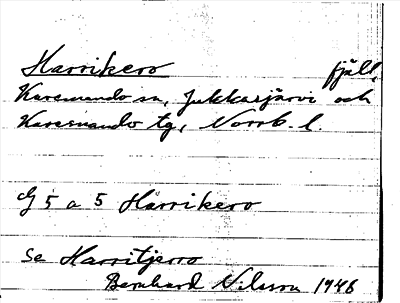 Harrikero fjäll,
Karesuando sn, Jukkasjärvi och
Karesuando tg, Norrb. l.
G 5 a 5 Harrikero
Se Harritjerro
Bernhard Nilsson 1946